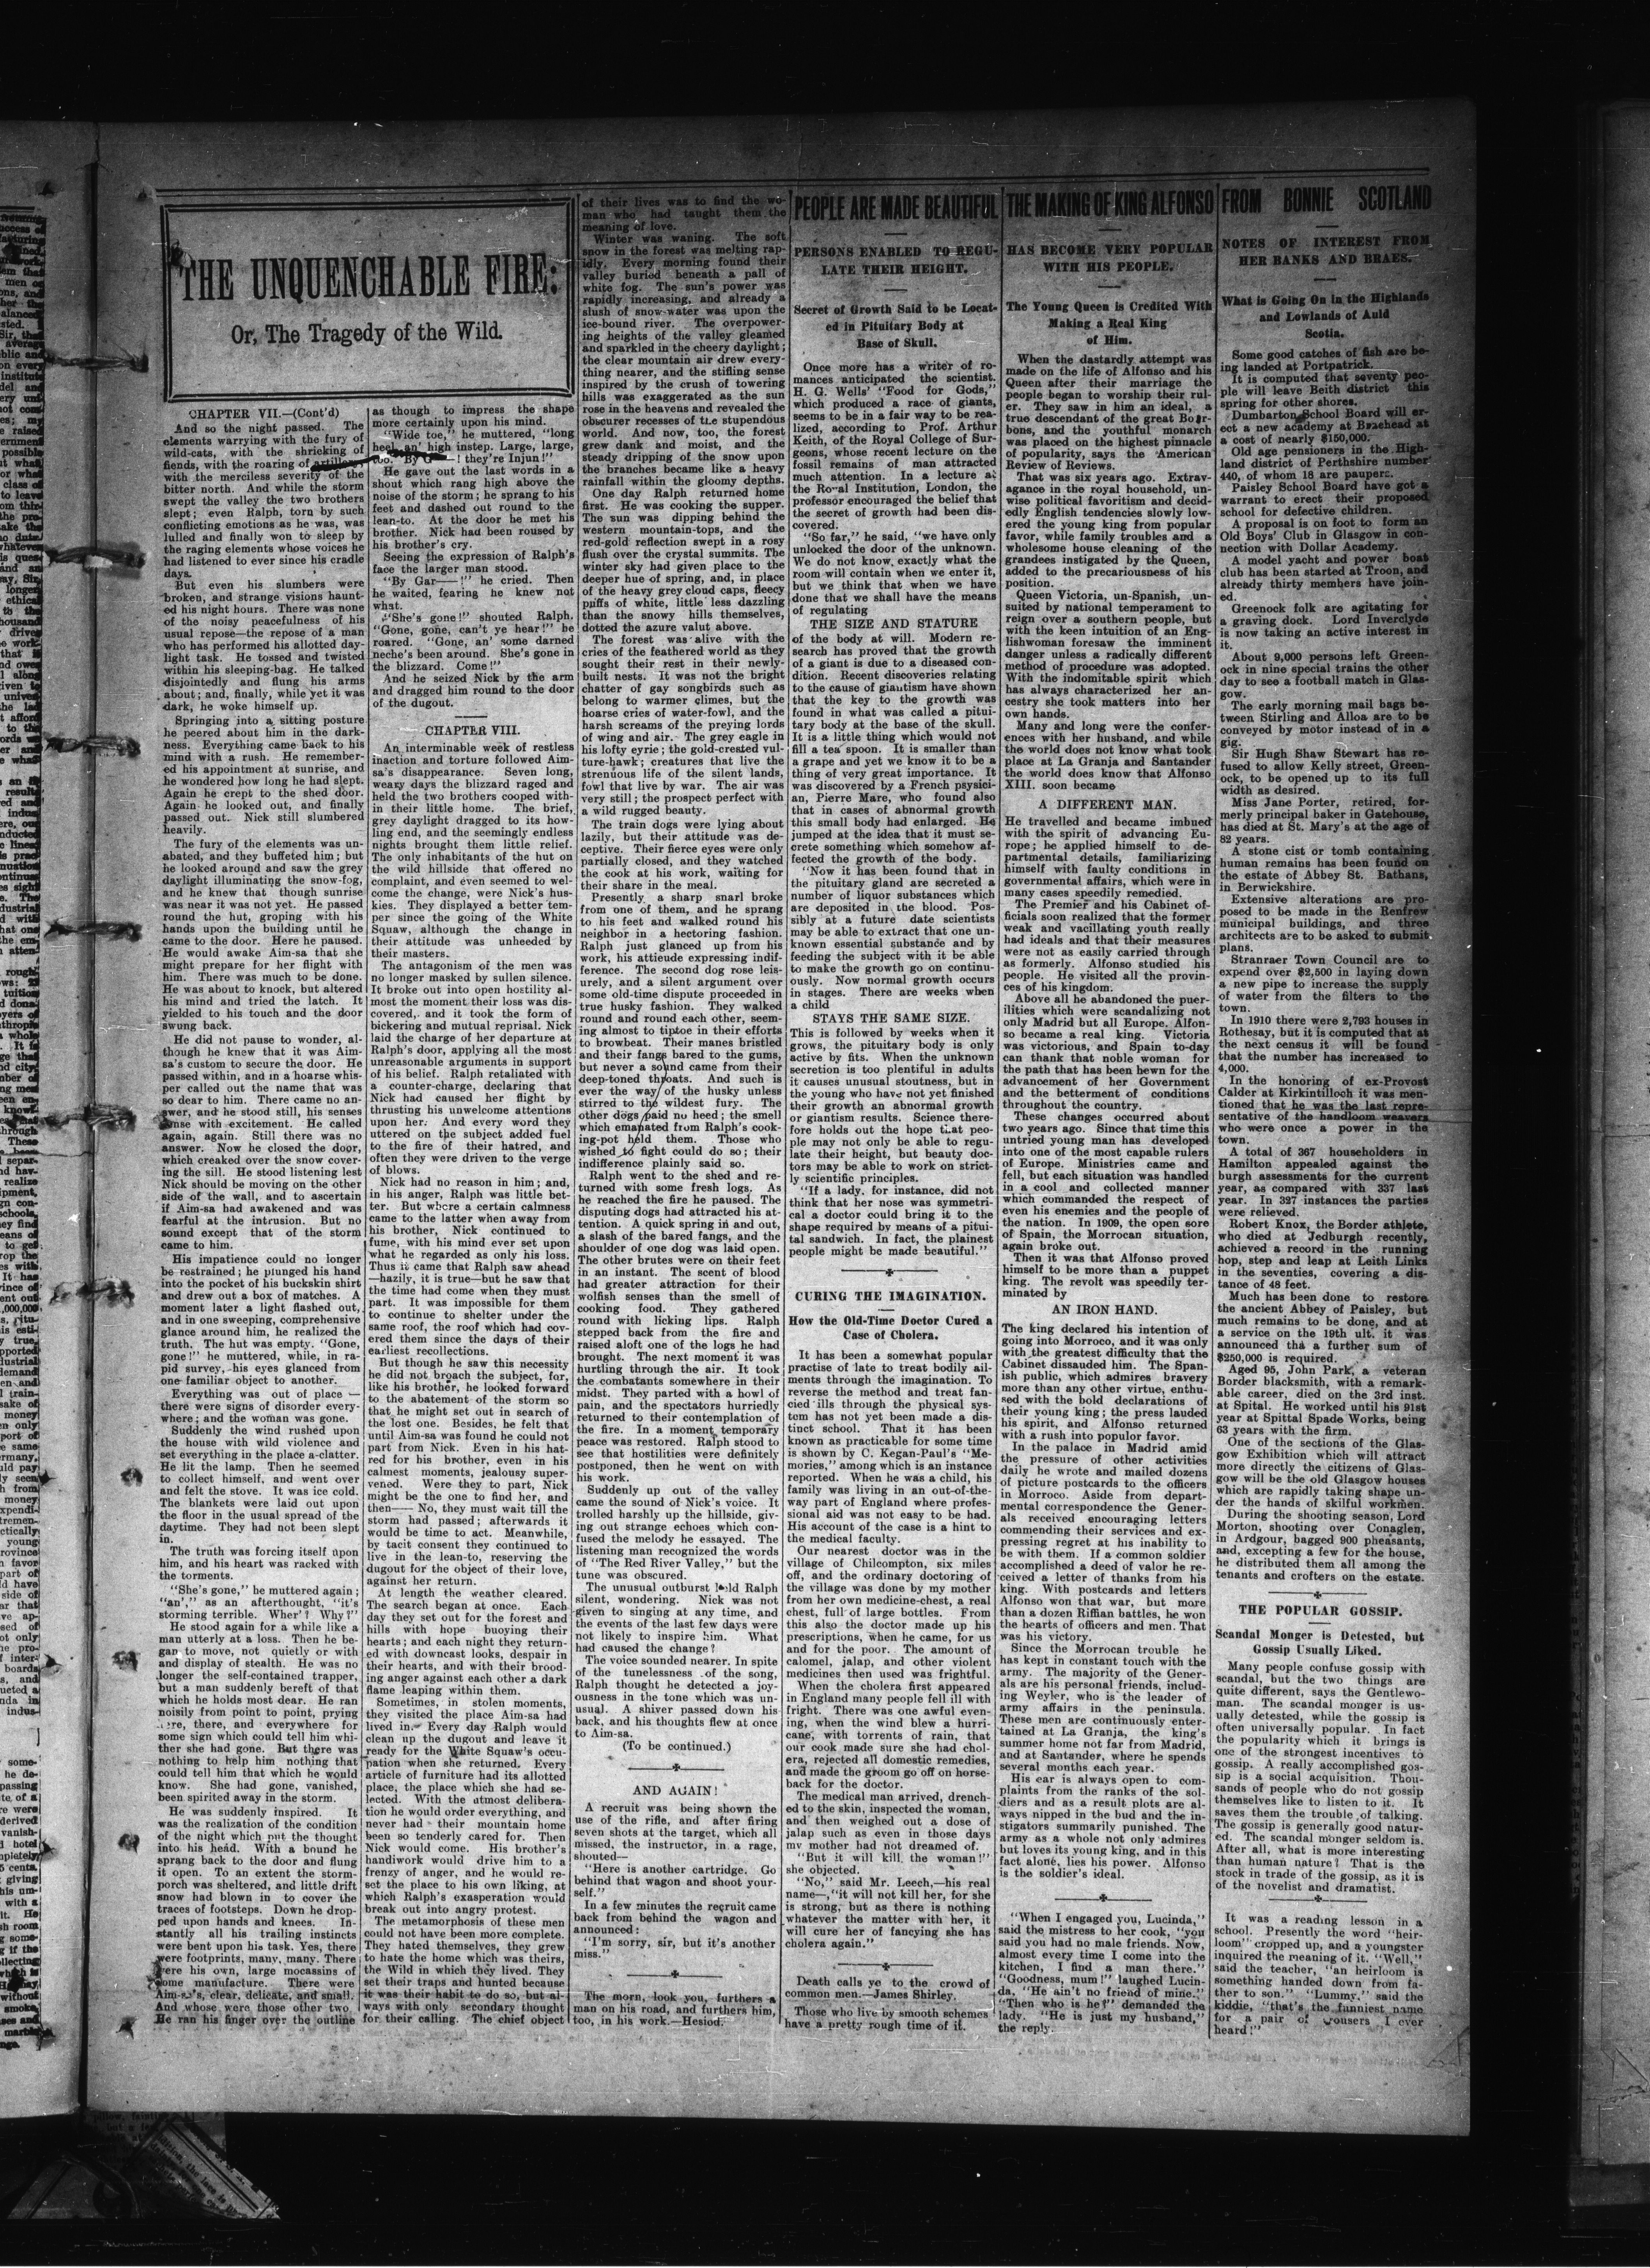 THE UNQUENCHABLE FIRE:
Or, The Tragedy of the Wild.
CHAPTER VII.—(Cont'd)
And so the night passed. The
elements warrying with the fury of
wild-cats, with the shrieking of
fiends, with the roaring of artillery,
with the merciless severity of the
bitter north. And while the storm
swept the valley the two brothers
slept; even Ralph, torn by such
conflicting emotions as he was, was
lulled and finally won to sleep by
the raging elements whose voices he
had listened to ever since his cradle
days.
But even his slumbers were
broken, and strange visions haunt-
ed his night hours. There was none
of the noisy peacefulness of his
usual repose—the repose of a man
who has performed his allotted day-
light task. He tossed and twisted
within his sleeping-bag. He talked
disjointedly and flung his arms
about; and, finally, while yet it was
dark, he woke himself up.
Springing into a sitting posture
he peered about him in the dark-
ness. Everything came back to his
mind with a rush. He remember-
ed his appointment at sunrise, and
he wondered how long he had slept.
Again he crept to the shed door.
Again he looked out, and finally
passed out. Nick still slumbered
heavily.
The fury of the elements was un-
abated, and they buffeted him; but
he looked around and saw the grey
daylight illuminating the snow-fog,
and he knew that though sunrise
was near it was not yet. He passed
round the hut, groping with his
hands upon the building until he
came to the door. Here he paused.
He would awake Aim-sa that she
might prepare for her flight with
him. There was much to be done.
He was about to knock, but altered
his mind and tried the latch. It
yielded to his touch and the door
swung back.
He did not pause to wonder, al-
though he knew that it was Aim-
sa's custom to secure the door. He
passed within, and in a hoarse whis-
per called out the name that was
so dear to him. There came no an-
swer, and he stood still, his senses
tense with excitement. He called
again, again. Still there was no
answer. Now he closed the door,
which creaked over the snow cover-
ing the sill. He stood listening lest
Nick should be moving on the other
side of the wall, and to ascertain
if Aim-sa had awakened and was
fearful at the intrusion. But no
sound except that of the storm
came to him.
His impatience could no longer
be restrained; he plunged his hand
into the pocket of his buckskin shirt
and drew out a box of matches. A
moment later a light flashed out,
and in one sweeping, comprehensive
glance around him, he realized the
truth. The hut was empty. "Gone,
gone!" he muttered, while, in ra-
pid survey, his eyes glanced from
one familiar object to another.
Everything was out of place —
there were signs of disorder every-
where; and the woman was gone.
Suddenly the wind rushed upon
the house with wild violence and
set everything in the place a-clatter.
He lit the lamp. Then he seemed
to collect himself, and went over
and felt the stove. It was ice cold.
The blankets were laid out upon
the floor in the usual spread of the
daytime. They had not been slept
in.
The truth was forcing itself upon
him, and his heart was racked with
the torments.
"She's gone," he muttered again;
"an'," as an afterthought, "it's
storming terrible. Wher'? Why?"
He stood again for a while like a
man utterly at a loss. Then he be-
gan to move, not quietly or with
and display of stealth. He was no
longer the self-contained trapper,
but a man suddenly bereft of that
which he holds most dear. He ran
noisily from point to point, prying
here, there, and everywhere for
some sign which could tell him whi-
ther she had gone. But there was
nothing to help him nothing that
could tell him that which he would
know. She had gone, vanished,
been spirited away in the storm.
He was suddenly inspired. It
was the realization of the condition
of the night which put the thought
into his head. With a bound he
sprang back to the door and flung
it open. To an extent the storm-
porch was sheltered, and little drift
snow had blown in to cover the
traces of footsteps. Down he drop-
ped upon hands and knees. In-
stantly all his trailing instincts
were bent upon his task. Yes, there
were footprints, many, many. There
were his own, large mocassins of
home manufacture. There were
Aim-sa's, clear, delicate, and small.
And whose were those other two
He ran his finger over the outline
as though to impress the shape
more certainly upon his mind.
"Wide toe," he muttered, "long
heel an' high instep. Large, large,
too. By G——! they're Injun!"
He gave out the last words in a
shout which rang high above the
noise of the storm; he sprang to his
feet and dashed out round to the
lean-to. At the door he met his
brother. Nick had been roused by
his brother's cry.
Seeing the expression of Ralph's
face the larger man stood.
"By Gar——!" he cried. Then
he waited, fearing he knew not
what.
"She's gone!" shouted Ralph.
"Gone, gone, can't ye hear!" he
roared. "Gone, an' some darned
neche's been around. She's gone in
the blizzard. Come!"
And he seized Nick by the arm
and dragged him round to the door
of the dugout.
CHAPTER VIII.
An interminable week of restless
inaction and torture followed Aim-
sa's disappearance. Seven long,
weary days the blizzard raged and
held the two brothers cooped with-
in their little home. The brief,
grey daylight dragged to its how-
ling end, and the seemingly endless
nights brought them little relief.
The only inhabitants of the hut on
the wild hillside that offered no
complaint, and even seemed to wel-
come the change, were Nick's hus-
kies. They displayed a better tem-
per since the going of the White
Squaw, although the change in
their attitude was unheeded by
their masters.
The antagonism of the men was
no longer masked by sullen silence.
It broke out into open hostility al-
most the moment their loss was dis-
covered, and it took the form of
bickering and mutual reprisal. Nick
laid the charge of her departure at
Ralph's door, applying all the most
unreasonable arguments in support
of his belief. Ralph retaliated with
a counter-charge, declaring that
Nick had caused her flight by
thrusting his unwelcome attentions
upon her. And every word they
uttered on the subject added fuel
to the fire of their hatred, and
often they were driven to the verge
of blows.
Nick had no reason in him; and,
in his anger, Ralph was little bet-
ter. But where a certain calmness
came to the latter when away from
his brother, Nick continued to
fume, with his mind ever set upon
what he regarded as only his loss.
Thus it came that Ralph saw ahead
—hazily, it is true—but he saw that
the time had come when they must
part. It was impossible for them
to continue to shelter under the
same roof, the roof which had cov-
ered them since the days of their
earliest recollections.
But though he saw this necessity
he did not broach the subject, for,
like his brother, he looked forward
to the abatement of the storm so
that he might set out in search of
the lost one. Besides, he felt that
until Aim-sa was found he could not
part from Nick. Even in his hat-
red for his brother, even in his
calmest moments, jealousy super-
vened. Were they to part, Nick
might be the one to find her, and
then—— No, they must wait till the
storm had passed; afterwards it
would be time to act. Meanwhile,
by tacit consent they continued to
live in the lean-to, reserving the
dugout for the object of their love,
against her return.
At length the weather cleared.
The search began at once. Each
day they set out for the forest and
hills with hope buoying their
hearts; and each night they return-
ed with downcast looks, despair in
their hearts, and with their brood-
ing anger against each other a dark
flame leaping within them.
Sometimes, in stolen moments,
they visited the place Aim-sa had
lived in. Every day Ralph would
clean up the dugout and leave it
ready for the White Squaw's occu-
pation when she returned. Every
article of furniture had its allotted
place, the place which she had se-
lected. With the utmost delibera-
tion he would order everything, and
never had their mountain home
been so tenderly cared for. Then
Nick would come. His brother's
handiwork would drive him to a
frenzy of anger, and he would re-
set the place to his own liking, at
which Ralph's exasperation would
break out into angry protest.
The metamorphosis of these men
could not have been more complete.
They hated themselves, they grew
to hate the home which was theirs,
the Wild in which they lived. They
set their traps and hunted because
it was their habit to do so, but al-
ways with only secondary thought
for their calling. The chief object
of their lives was to find the wo-
man who had taught them the
meaning of love.
Winter was waning. The soft
snow in the forest was melting rap-
idly. Every morning found their
valley buried beneath a pall of
white fog. The sun's power was
rapidly increasing, and already a
slush of snow-water was upon the
ice-bound river. The overpower-
ing heights of the valley gleamed
and sparkled in the cheery daylight;
the clear mountain air drew every-
thing nearer, and the stifling sense
inspired by the crush of towering
hills was exaggerated as the sun
rose in the heavens and revealed the
obscurer recesses of the stupendous
world. And now, too, the forest
grew dank and moist, and the
steady dripping of the snow upon
the branches became like a heavy
rainfall within the gloomy depths.
One day Ralph returned home
first. He was cooking the supper.
The sun was dipping behind the
western mountain-tops, and the
red-gold reflection swept in a rosy
flush over the crystal summits. The
winter sky had given place to the
deeper hue of spring, and, in place
of the heavy grey cloud caps, fleecy
puffs of white, little less dazzling
than the snowy hills themselves,
dotted the azure valut above.
The forest was alive with the
cries of the feathered world as they
sought their rest in their newly-
built nests. It was not the bright
chatter of gay songbirds such as
belong to warmer climes, but the
hoarse cries of water-fowl, and the
harsh screams of the preying lords
of wing and air. The grey eagle in
his lofty eyrie; the gold-crested vul-
ture-hawk; creatures that live the
strenuous life of the silent lands,
fowl that live by war. The air was
very still; the prospect perfect with
a wild rugged beauty.
The train dogs were lying about
lazily, but their attitude was de-
ceptive. Their fierce eyes were only
partially closed, and they watched
the cook at his work, waiting for
their share in the meal.
Presently a sharp snarl broke
from one of them, and he sprang
to his feet and walked round his
neighbor in a hectoring fashion.
Ralph just glanced up from his
work, his attieude expressing indif-
ference. The second dog rose leis-
urely, and a silent argument over
some old-time dispute proceeded in
true husky fashion. They walked
round and round each other, seem-
ing almost to tiptoe in their efforts
to browbeat. Their manes bristled
and their fangs bared to the gums,
but never a sound came from their
deep-toned throats. And such is
ever the way of the husky unless
stirred to the wildest fury. The
other dogs paid no heed; the smell
which emanated from Ralph's cook-
ing-pot held them. Those who
wished to fight could do so; their
indifference plainly said so.
Ralph went to the shed and re-
turned with some fresh logs. As
he reached the fire he paused. The
disputing dogs had attracted his at-
tention. A quick spring in and out,
a slash of the bared fangs, and the
shoulder of one dog was laid open.
The other brutes were on their feet
in an instant. The scent of blood
had greater attraction for their
wolfish senses than the smell of
cooking food. They gathered
round with licking lips. Ralph
stepped back from the fire and
raised aloft one of the logs he had
brought. The next moment it was
hurtling through the air. It took
the combatants somewhere in their
midst. They parted with a howl of
pain, and the spectators hurriedly
returned to their contemplation of
the fire. In a moment temporary
peace was restored. Ralph stood to
see that hostilities were definitely
postponed, then he went on with
his work.
Suddenly up out of the valley
came the sound of Nick's voice. It
trolled harshly up the hillside, giv-
ing out strange echoes which con-
fused the melody he essayed. The
listening man recognized the words
of "The Red River Valley," but the
tune was obscured.
The unusual outburst held Ralph
silent, wondering. Nick was not
given to singing at any time, and
the events of the last few days were
not likely to inspire him. What
had caused the change?
The voice sounded nearer. In spite
of the tunelessness of the song,
Ralph thought he detected a joy-
ousness in the tone which was un-
usual. A shiver passed down his
back, and his thoughts flew at once
to Aim-sa.
(To be continued.)
AND AGAIN!
A recruit was being shown the
use of the rifle, and after firing
seven shots at the target, which all
missed, the instructor, in a rage,
shouted—
"Here is another cartridge. Go
behind that wagon and shoot your-
self."
In a few minutes the recruit came
back from behind the wagon and
announced:
"I'm sorry, sir, but it's another
miss."
The morn, look you, furthers a
man on his road, and furthers him,
too, in his work.—Hesiod.
PEOPLE ARE MADE BEAUTIFUL
PERSONS ENABLED TO REGU-
LATE THEIR HEIGHT.
Secret of Growth Said to be Locat-
ed in Pituitary Body at
Base of Skull.
Once more has a writer of ro-
mances anticipated the scientist.
H. G. Wells' "Food for Gods,"
which produced a race of giants,
seems to be in a fair way to be rea-
lized, according to Prof. Arthur
Keith, of the Royal College of Sur-
geons, whose recent lecture on the
fossil remains of man attracted
much attention. In a lecture at
the Royal Institution, London, the
professor encouraged the belief that
the secret of growth had been dis-
covered.
"So far," he said, "we have only
unlocked the door of the unknown.
We do not know exactly what the
room will contain when we enter it,
but we think that when we have
done that we shall have the means
of regulating
THE SIZE AND STATURE
of the body at will. Modern re-
search has proved that the growth
of a giant is due to a diseased con-
dition. Recent discoveries relating
to the cause of giantism have shown
that the key to the growth was
found in what was called a pitui-
tary body at the base of the skull.
It is a little thing which would not
fill a tea spoon. It is smaller than
a grape and yet we know it to be a
thing of very great importance. It
was discovered by a French psysici-
an, Pierre Mare, who found also
that in cases of abnormal growth
this small body had enlarged. He
jumped at the idea that it must se-
crete something which somehow af-
fected the growth of the body.
"Now it has been found that in
the pituitary gland are secreted a
number of liquor substances which
are deposited in the blood. Pos-
sibly at a future date scientists
may be able to extract that one un-
known essential substance and by
feeding the subject with it be able
to make the growth go on continu-
ously. Now normal growth occurs
in stages. There are weeks when
a child
STAYS THE SAME SIZE.
This is followed by weeks when it
grows, the pituitary body is only
active by fits. When the unknown
secretion is too plentiful in adults
it causes unusual stoutness, but in
the young who have not yet finished
their growth an abnormal growth
or giantism results. Science there-
fore holds out the hope that peo-
ple may not only be able to regu-
late their height, but beauty doc-
tors may be able to work on strict-
ly scientific principles.
"If a lady, for instance, did not
think that her nose was symmetri-
cal a doctor could bring it to the
shape required by means of a pitui-
tal sandwich. In fact, the plainest
people might be made beautiful."
CURING THE IMAGINATION.
How the Old-Time Doctor Cured a
Case of Cholera.
It has been a somewhat popular
practise of late to treat bodily ail-
ments through the imagination. To
reverse the method and treat fan-
cied ills through the physical sys-
tem has not yet been made a dis-
tinct school. That it has been
known as practicable for some time
is shown by C. Kegan-Paul's "Me-
mories," among which is an instance
reported. When he was a child, his
family was living in an out-of-the-
way part of England where profes-
sional aid was not easy to be had.
His account of the case is a hint to
the medical faculty.
Our nearest doctor was in the
village of Chilcompton, six miles
off, and the ordinary doctoring of
the village was done by my mother
from her own medicine-chest, a real
chest, full of large bottles. From
this also the doctor made up his
prescriptions, when he came, for us
and for the poor. The amount of
calomel, jalap, and other violent
medicines then used was frightful.
When the cholera first appeared
in England many people fell ill with
fright. There was one awful even-
ing, when the wind blew a hurri-
cane, with torrents of rain, that
our cook made sure she had chol-
era, rejected all domestic remedies,
and made the groom go off on horse-
back for the doctor.
The medical man arrived, drench-
ed to the skin, inspected the woman,
and then weighed out a dose of
jalap such as even in those days
my mother had not dreamed of.
"But it will kill the woman!"
she objected.
"No," said Mr. Leech,—his real
name—,"it will not kill her, for she
is strong, but as there is nothing
whatever the matter with her, it
will cure her of fancying she has
cholera again."
Death calls ye to the crowd of
common men.—James Shirley.
Those who live by smooth schemes
have a pretty rough time of it.
THE MAKING OF KING ALFONSO
HAS BECOME VERY POPULAR
WITH HIS PEOPLE.
The Young Queen is Credited With
Making a Real King
of Him.
When the dastardly attempt was
made on the life of Alfonso and his
Queen after their marriage the
people began to worship their rul-
er. They saw in him an ideal, a
true descendant of the great Bour-
bons, and the youthful monarch
was placed on the highest pinnacle
of popularity, says the American
Review of Reviews.
That was six years ago. Extrav-
agance in the royal household, un-
wise political favoritism and decid-
edly English tendencies slowly low-
ered the young king from popular
favor, while family troubles and a
wholesome house cleaning of the
grandees instigated by the Queen,
added to the precariousness of his
position.
Queen Victoria, un-Spanish, un-
suited by national temperament to
reign over a southern people, but
with the keen intuition of an Eng-
lishwoman foresaw the imminent
danger unless a radically different
method of procedure was adopted.
With the indomitable spirit which
has always characterized her an-
cestry she took matters into her
own hands.
Many and long were the confer-
ences with her husband, and while
the world does not know what took
place at La Granja and Santander
the world does know that Alfonso
XIII. soon became
A DIFFERENT MAN.
He travelled and became imbued
with the spirit of advancing Eu-
rope; he applied himself to de-
partmental details, familiarizing
himself with faulty conditions in
governmental affairs, which were in
many cases speedily remedied.
The Premier and his Cabinet of-
ficials soon realized that the former
weak and vacillating youth really
had ideals and that their measures
were not as easily carried through
as formerly. Alfonso studied his
people. He visited all the provin-
ces of his kingdom.
Above all he abandoned the puer-
ilities which were scandalizing not
only Madrid but all Europe. Alfon-
so became a real king. Victoria
was victorious, and Spain to-day
can thank that noble woman for
the path that has been hewn for the
advancement of her Government
and the betterment of conditions
throughout the country.
These changes occurred about
two years ago. Since that time this
untried young man has developed
into one of the most capable rulers
of Europe. Ministries came and
fell, but each situation was handled
in a cool and collected manner
which commanded the respect of
even his enemies and the people of
the nation. In 1909, the open sore
of Spain, the Morrocan situation,
again broke out.
Then it was that Alfonso proved
himself to be more than a puppet
king. The revolt was speedily ter-
minated by
AN IRON HAND.
The king declared his intention of
going into Morroco, and it was only
with the greatest difficulty that the
Cabinet dissauded him. The Span-
ish public, which admires bravery
more than any other virtue, enthu-
sed with the bold declarations of
their young king; the press lauded
his spirit, and Alfonso returned
with a rush into populor favor.
In the palace in Madrid amid
the pressure of other activities
daily he wrote and mailed dozens
of picture postcards to the officers
in Morroco. Aside from depart-
mental correspondence the Gener-
als received encouraging letters
commending their services and ex-
pressing regret at his inability to
be with them. If a common soldier
accomplished a deed of valor he re-
ceived a letter of thanks from his
king. With postcards and letters
Alfonso won that war, but more
than a dozen Riffian battles, he won
the hearts of officers and men. That
was his victory.
Since the Morrocan trouble he
has kept in constant touch with the
army. The majority of the Gener-
als are his personal friends, includ-
ing Weyler, who is the leader of
army affairs in the peninsula.
These men are continuously enter-
tained at La Granja, the king's
summer home not far from Madrid,
and at Santander, where he spends
several months each year.
His ear is always open to com-
plaints from the ranks of the sol-
diers and as a result plots are al-
ways nipped in the bud and the in-
stigators summarily punished. The
army as a whole not only admires
but loves its young king, and in this
fact alone, lies his power. Alfonso
is the soldier's ideal.
"When I engaged you, Lucinda,"
said the mistress to her cook, "you
said you had no male friends. Now,
almost every time I come into the
kitchen, I find a man there."
"Goodness, mum!" laughed Lucin-
da, "He ain't no friend of mine."
"Then who is he?" demanded the
lady. "He is just my husband,"
the reply.
FROM BONNIE SCOTLAND
NOTES OF INTEREST FROM
HER BANKS AND BRAES.
What is Going On in the Highlands
and Lowlands of Auld
Scotia.
Some good catches of fish are be-
ing landed at Portpatrick.
It is computed that seventy peo-
ple will leave Beith district this
spring for other shores.
Dumbarton School Board will er-
ect a new academy at Braehead at
a cost of nearly $150,000.
Old age pensioners in the High-
land district of Perthshire number
440, of whom 18 are paupers.
Paisley School Board have got a
warrant to erect their proposed
school for defective children.
A proposal is on foot to form an
Old Boys' Club in Glasgow in con-
nection with Dollar Academy.
A model yacht and power boat
club has been started at Troon, and
already thirty members have join-
ed.
Greenock folk are agitating for
a graving dock. Lord Inverclyde
is now taking an active interest in
it.
About 9,000 persons left Green-
ock in nine special trains the other
day to see a football match in Glas-
gow.
The early morning mail bags be-
tween Stirling and Alloa are to be
conveyed by motor instead of in a
gig.
Sir Hugh Shaw Stewart has re-
fused to allow Kelly street, Green-
ock, to be opened up to its full
width as desired.
Miss Jane Porter, retired, for-
merly principal baker in Gatehouse,
has died at St. Mary's at the age of
82 years.
A stone cist or tomb containing
human remains has been found on
the estate of Abbey St. Bathans,
in Berwickshire.
Extensive alterations are pro-
posed to be made in the Renfrew
municipal buildings, and three
architects are to be asked to submit
plans.
Stranraer Town Council are to
expend over $2,500 in laying down
a new pipe to increase the supply
of water from the filters to the
town.
In 1910 there were 2,793 houses in
Rothesay, but it is computed that at
the next census it will be found
that the number has increased to
4,000.
In the honoring of ex-Provost
Calder at Kirkintilloch it was men-
tioned that he was the last repre-
sentative of the handloom weavers
who were once a power in the
town.
A total of 367 householders in
Hamilton appealed against the
burgh assessments for the current
year, as compared with 337 last
year. In 327 instances the parties
were relieved.
Robert Knox, the Border athlete,
who died at Jedburgh recently,
achieved a record in the running
hop, step and leap at Leith Links
in the seventies, covering a dis-
tance of 48 feet.
Much has been done to restore
the ancient Abbey of Paisley, but
much remains to be done, and at
a service on the 19th ult. it was
announced tha a further sum of
$250,000 is required.
Aged 95, John Park, a veteran
Border blacksmith, with a remark-
able career, died on the 3rd inst.
at Spital. He worked until his 91st
year at Spittal Spade Works, being
63 years with the firm.
One of the sections of the Glas-
gow Exhibition which will attract
more directly the citizens of Glas-
gow will be the old Glasgow houses
which are rapidly taking shape un-
der the hands of skilful workmen.
During the shooting season, Lord
Morton, shooting over Conaglen,
in Ardgour, bagged 900 pheasants,
and, excepting a few for the house,
he distributed them all among the
tenants and crofters on the estate.
THE POPULAR GOSSIP.
Scandal Monger is Detested, but
Gossip Usually Liked.
Many people confuse gossip with
scandal, but the two things are
quite different, says the Gentlewo-
man. The scandal monger is us-
ually detested, while the gossip is
often universally popular. In fact
the popularity which it brings is
one of the strongest incentives to
gossip. A really accomplished gos-
sip is a social acquisition. Thou-
sands of people who do not gossip
themselves like to listen to it. It
saves them the trouble of talking.
The gossip is generally good natur-
ed. The scandal monger seldom is.
After all, what is more interesting
than human nature? That is the
stock in trade of the gossip, as it is
of the novelist and dramatist.
It was a reading lesson in a
school. Presently the word "heir-
loom" cropped up, and a youngster
inquired the meaning of it. "Well,"
said the teacher, "an heirloom is
something handed down from fa-
ther to son." "Lummy," said the
kiddie, "that's the funniest name
for a pair of trousers I ever
heard!"